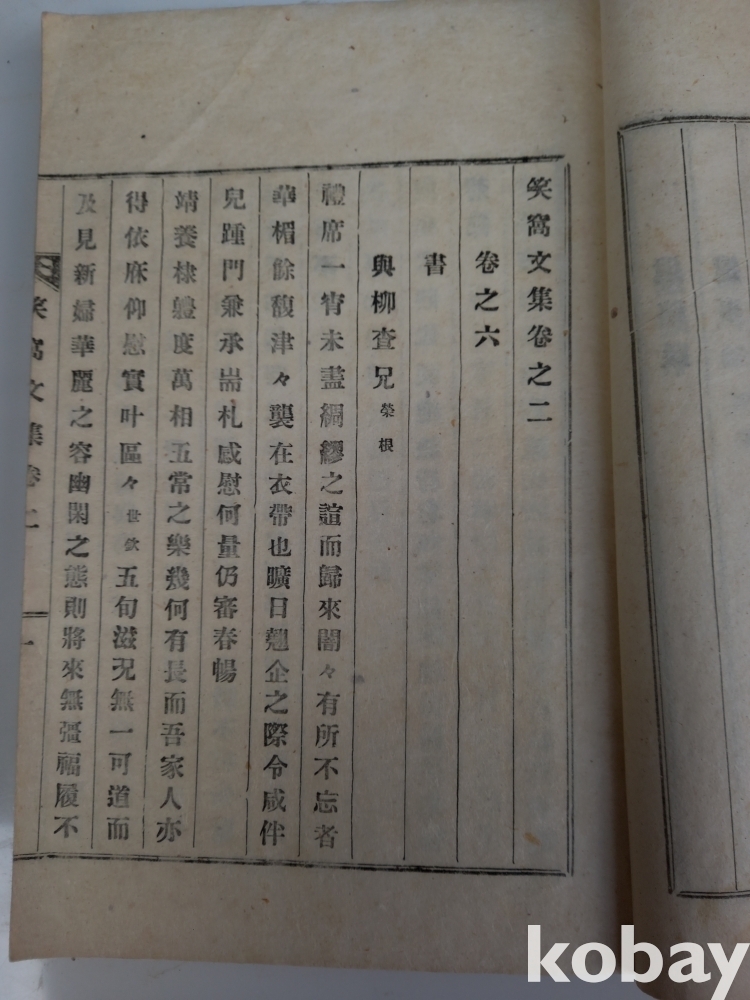 笑窩文集卷之二
卷之六
書
與柳査兄 榮根
禮席一宵未盡綢繆之誼而歸來闇々有所不忘者
華楣餘馥津々襲在衣帶也曠日翹企之際令咸伴
兒踵門兼承耑札感慰何量仍審春暢
靖養棣軆度萬相五常之樂幾何有長而吾家人亦
得依庥仰慰實叶區々世欽五旬滋况無一可道而
及見新婦華麗之容幽閑之態則將來無彊福履不
笑窩文集卷二 一
kobay